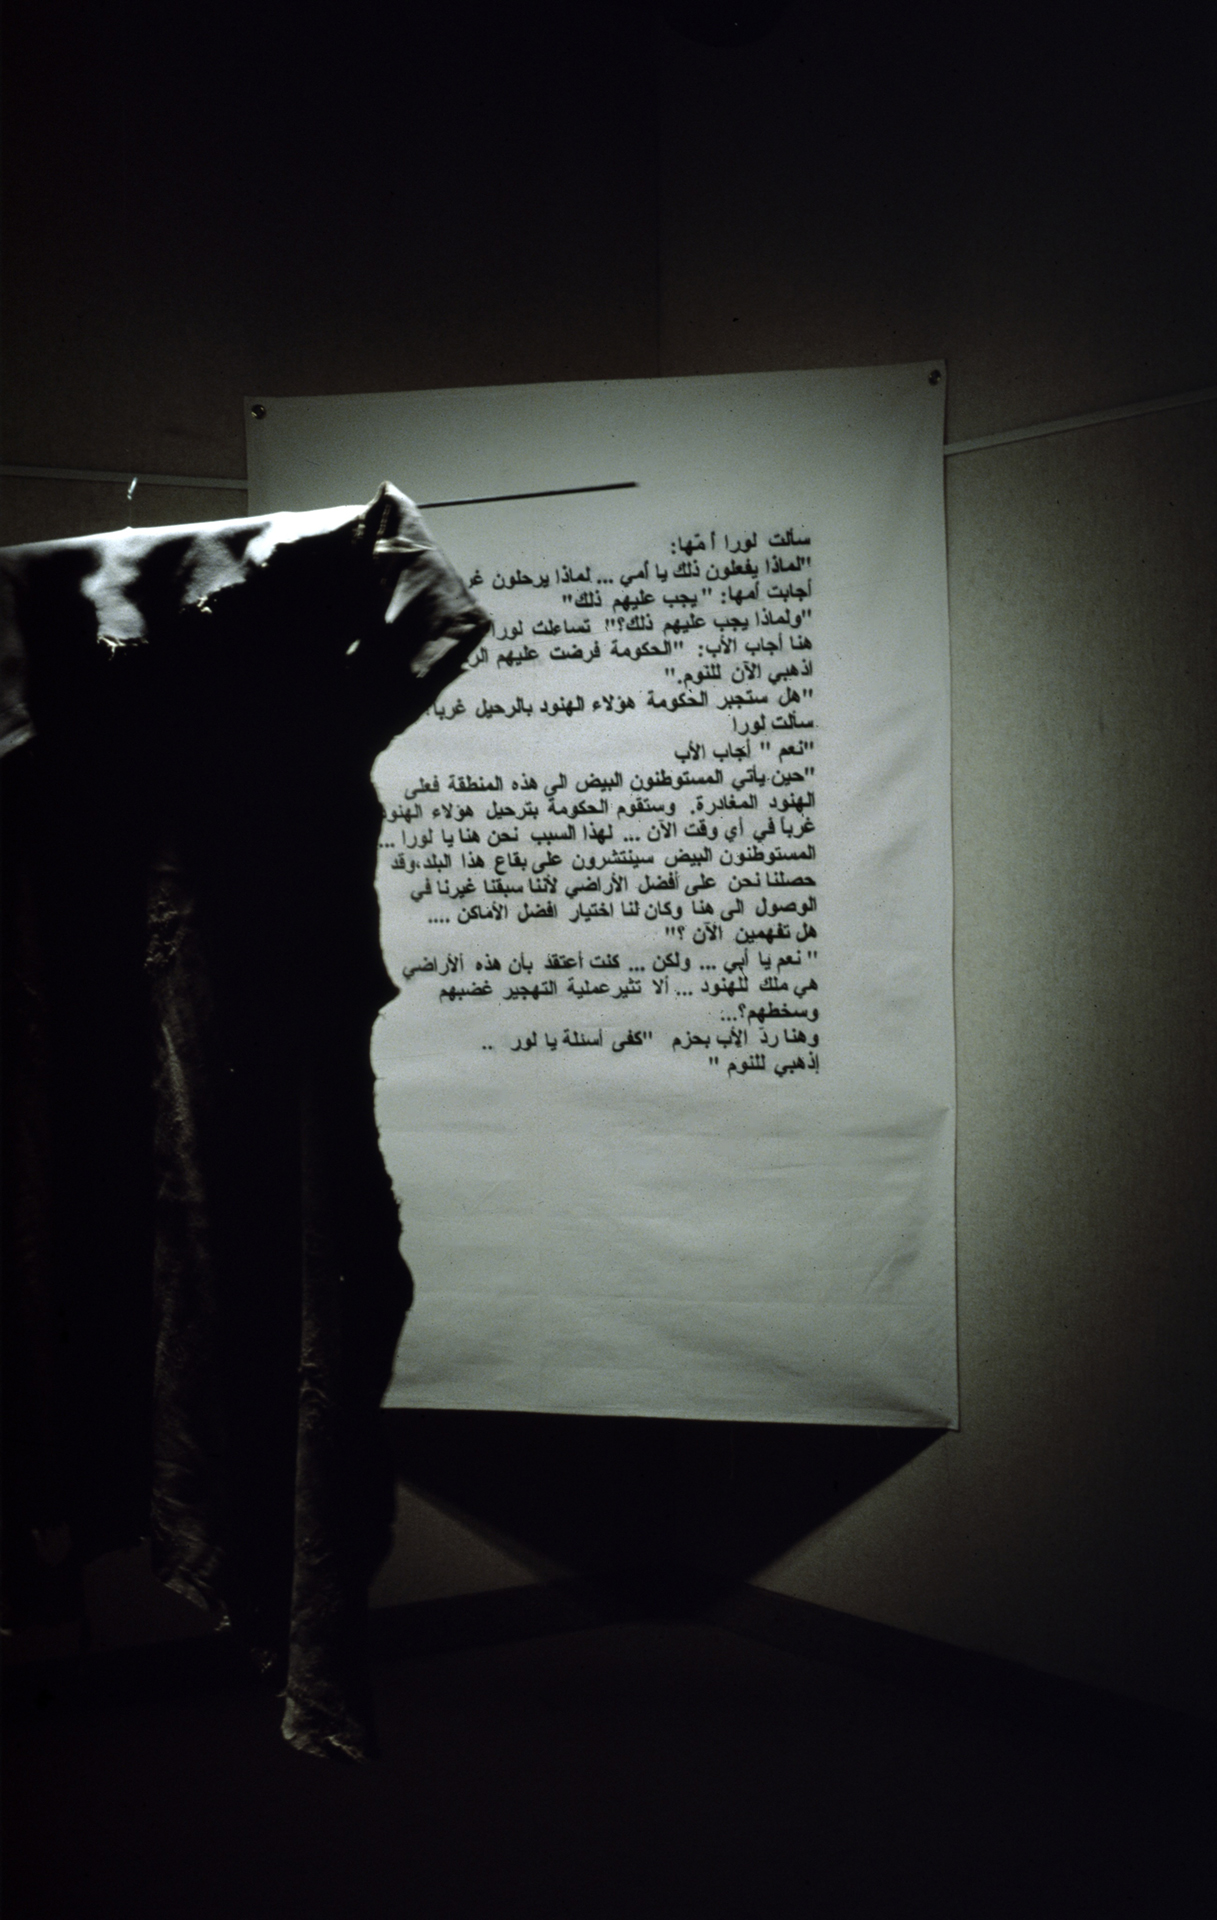 سألت لورا أمّها:
"لماذا يفعلون ذلك يا أمي ... لماذا يرحلون
أجابت أمها: "يجب عليهم ذلك"
"ولماذا يجب عليهم ذلك؟" تساءلت لورا
هنا أجاب الأب: "الحكومة فرضت عليهم
اذهبي الآن للنوم."
"هل ستجبر الحكومة هؤلاء الهنود بالرحيل غرباً؟
سألت لورا
"نعم" أجاب الأب
"حين يأتي المستوطنون البيض الى هذه المنطقة فعلى
الهنود المغادرة. وستقوم الحكومة بترحيل هؤلاء الهنود
غرباً في أي وقت الآن ... لهذا السبب نحن هنا يا لورا ...
المستوطنون البيض سينتشرون على بقاع هذا البلد،وقد
حصلنا نحن على أفضل الأراضي لأننا سبقنا غيرنا في
الوصول الى هنا وكان لنا اختيار افضل الأماكن ....
هل تفهمين الآن ؟"
" نعم يا أبي ... ولكن ... كنت أعتقد بأن هذه ألأراضي
هي ملك للهنود ... ألا تثيرعملية التهجير غضبهم
وسخطهم؟...
وهنا ردّ الأب بحزم "كفى أسئلة يا لور ..
إذهبي للنوم "